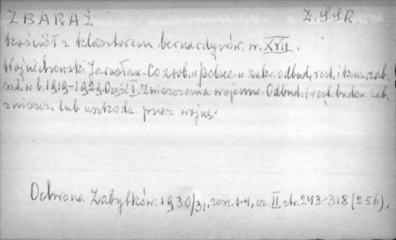 ZBARAŻ Z.SSR.
Kościół z klasztorem bernardynów, w. XVII.
Wojciechowski Jarosław. Co zrob. w Polsce w zakr. odbud., rest. i kons. zab.
szt. w l. 1919-1929. Część I. Zniszczenia wojenne. Odbud. i rest. budow. zab.
zniszcz. lub uszkodz. przez wojnę.
Ochrona Zabytków. 1930/31, zesz. 1-4, cz. II, str. 243-318 (256).